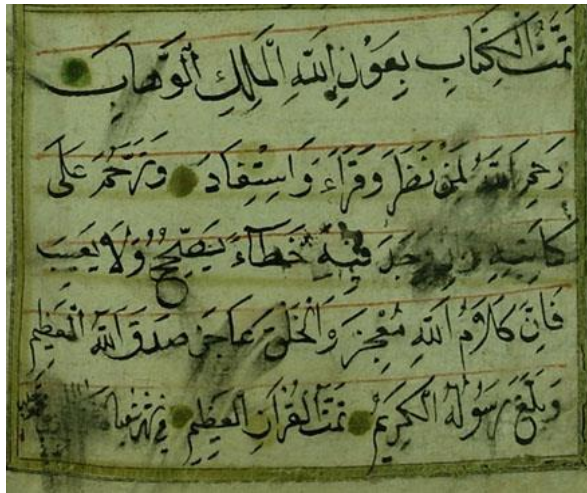 تَمَّتْ الْكِتَابِ بِعَوْنِ اللَّهِ الْمَلِكِ الْوَهَّابِ
رَحِمَ اللَّهُ لِمَنْ نَظَرَ وَقَرَاءَ وَاسْتِفَادَ وَتَرَحَّمَ عَلَى
كَاتِبِهِ وَجَدَ فِيْهِ خَطَاءً يُصَحِّحُ وَلَا يَعِيبَ
فَاِنَّ كَلَامُ اللَّهِ مُعْجِزَ وَالْخَلْقَ عَاجَزَ صَدَقَ اللَّهُ الْعَظِيمُ
وَبَلَّغَ رَسُولُهُ الْكَرِيمُ تَمَّتْ الْقُرْآنِ الْعَظِيمِ فِي